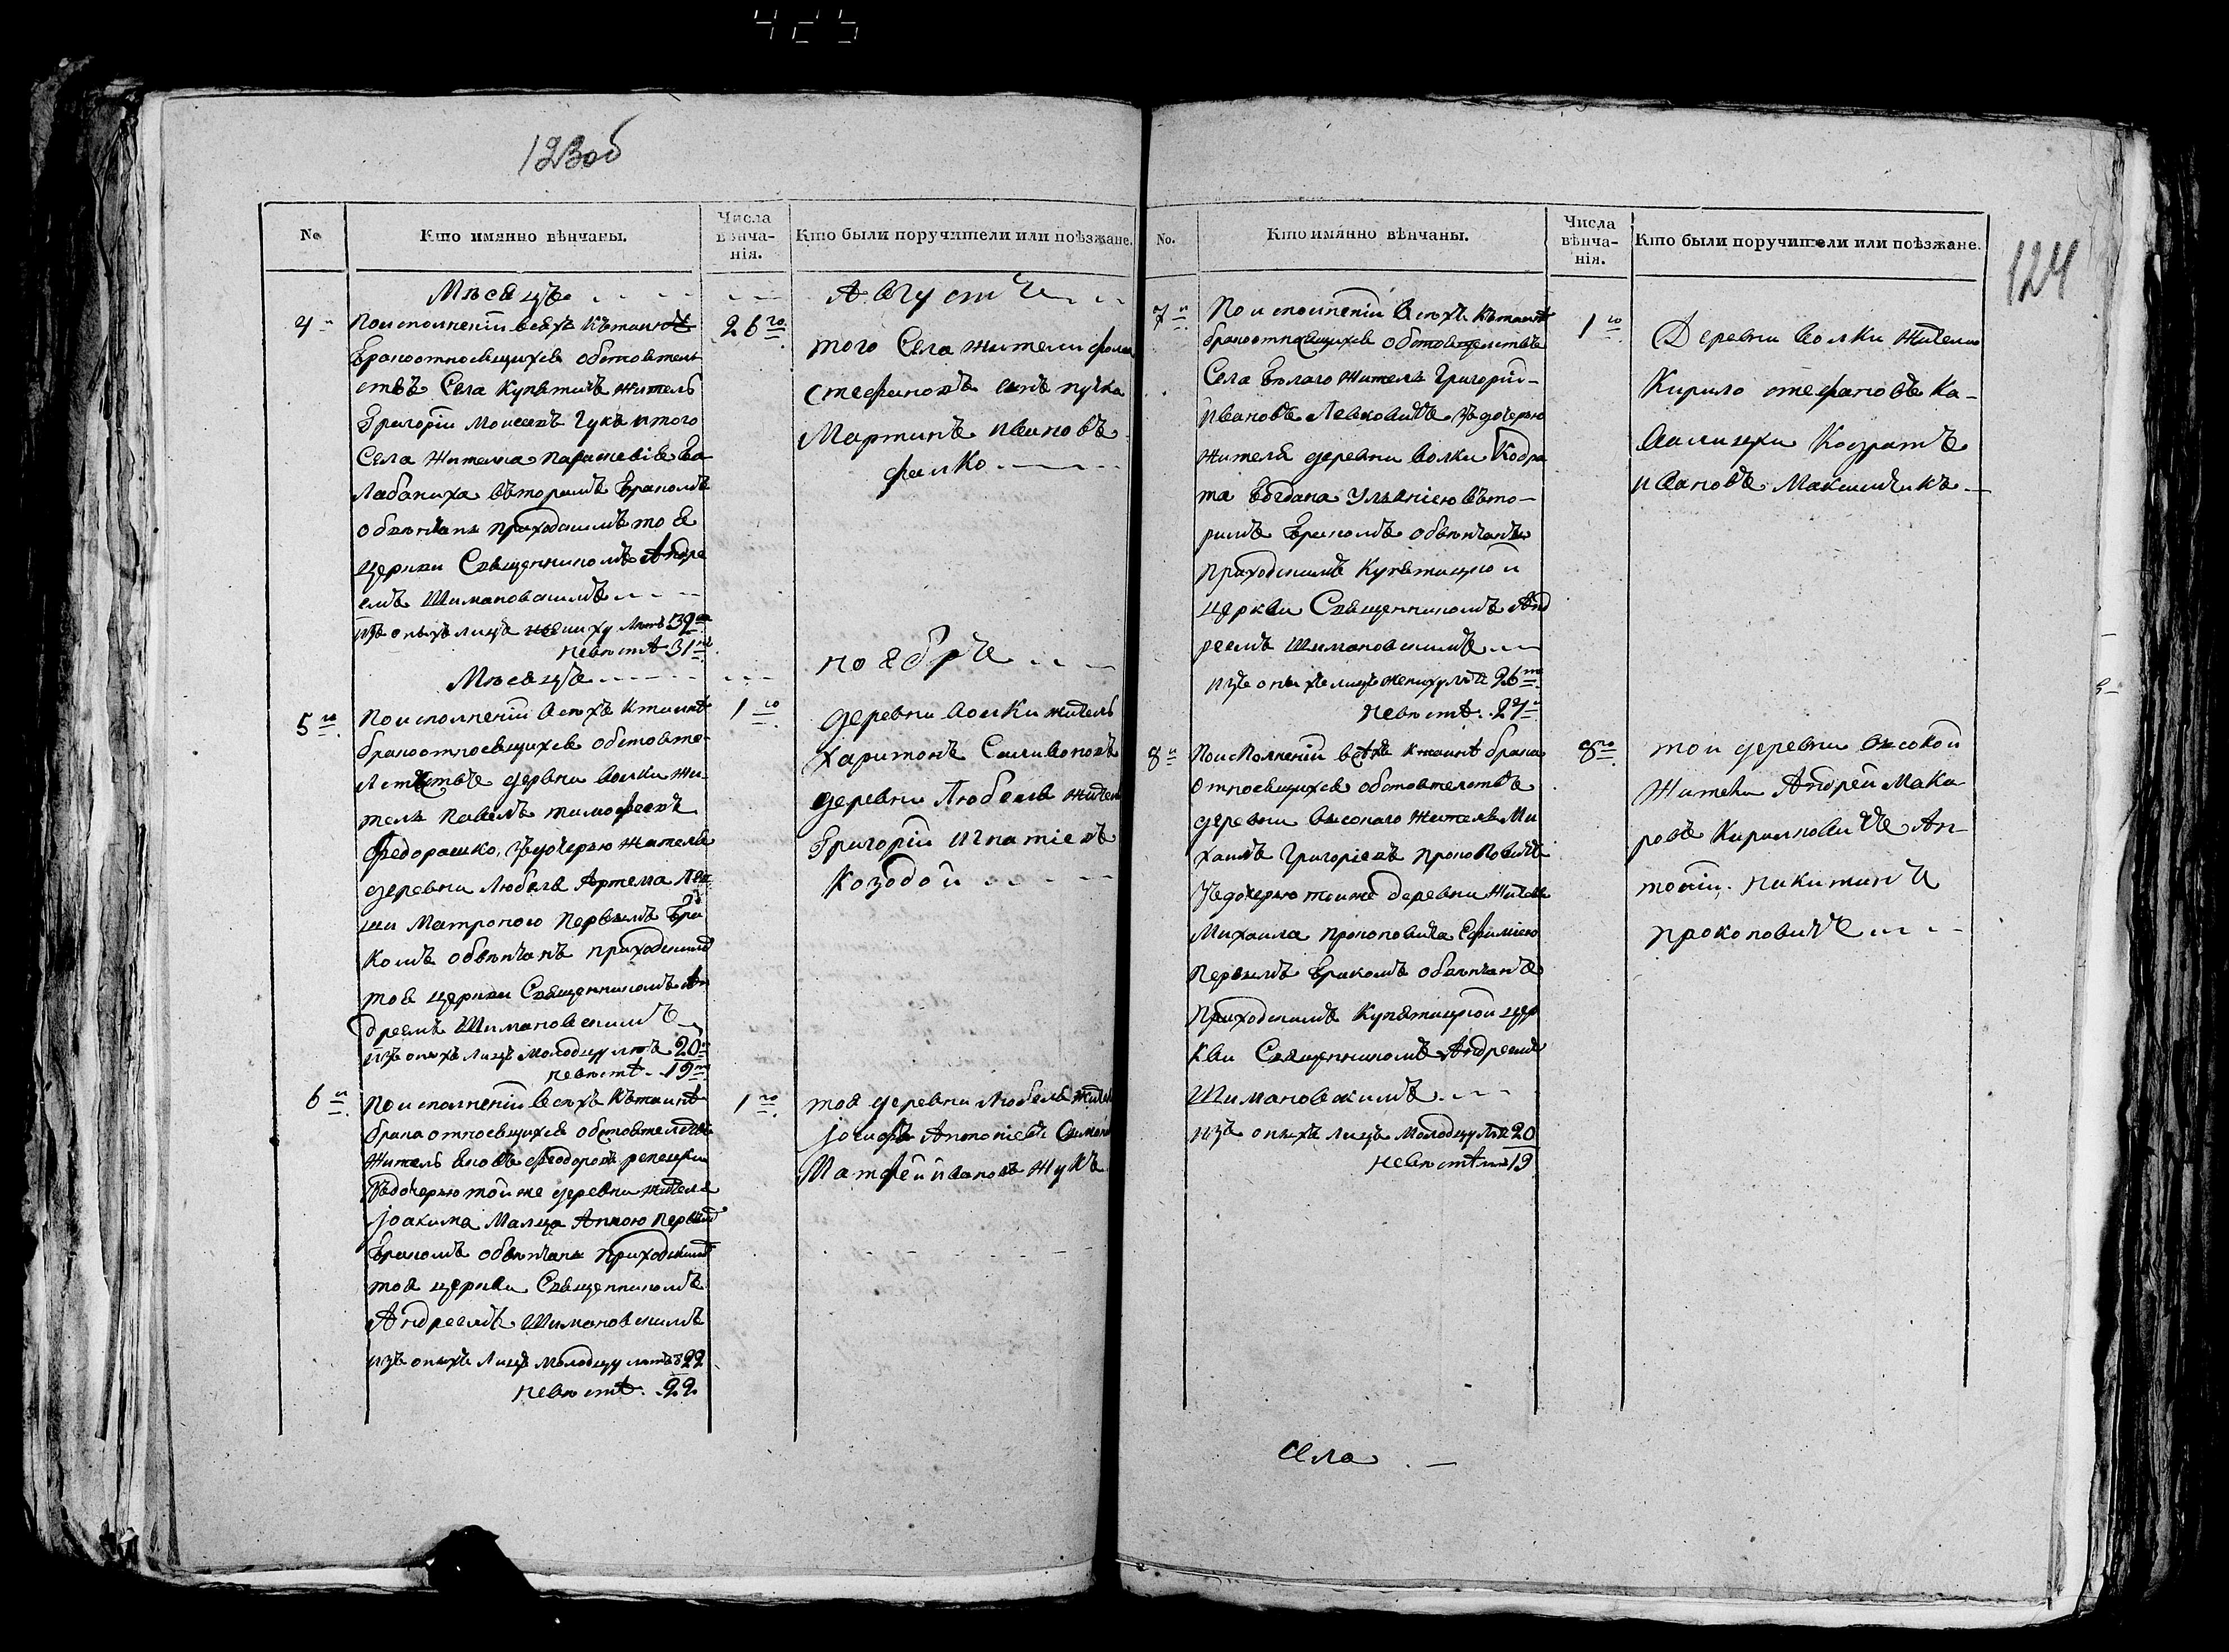 123об
№
Кто имянно вѣнчаны.
Числа
вѣнча-
нія.
Кто были поручители или поѣзжане.
Мѣсяцъ
Августъ
4
По исполненіи всѣхъ къ таинѣ
26го
брака относящихся обстоятель
ствъ Села Купятичъ житель
Григорій Моисеевъ Гукъ и того
Села жителка Параскевія Ба
лабаниха вторымъ бракомъ
обвѣнчаны приходскимъ тоя
церкви Священникомъ Андре
емъ Шимановскимъ
изъ оныхъ лицъ жениху лѣтъ 39
невѣстѣ 31
того Села жители
Стефановъ сынъ
Мартинъ Ивановъ
Фалко
Мѣсяцъ
ноябрь
5
По исполненіи всѣхъ к таинѣ
1го
брака относящихся обстояте-
лствъ деревни Волки жи-
тель Павелъ Тимофеевъ
Федорашко, зъ дочерью жителя
деревни Любеля Артема
Матроною первымъ бра
комъ обвѣнчанъ приходскимъ
тоя церкви Священникомъ Ан
дреемъ Шимановскимъ
изъ оныхъ лицъ молодцу лѣтъ 20
невѣстѣ 19
деревни Волки житель
Харитонъ Саливоновъ
деревни Любеля житель
Григорій Игнатіевъ
Козодой
6
По исполненіи всѣхъ къ таинѣ
1го
брака относящихся обстоятелствъ
житель Яковъ Феодоровъ
зъ дочерью тойже деревни жителя
Іоакима Малца Анною первымъ
бракомъ обвѣнчаны приходскимъ
тоя церкви Священникомъ
Андреемъ Шимановскимъ
изъ оныхъ лицъ молодцу лѣтъ 22
невѣстѣ 22
тоя деревни Любеля жители
Іосифъ Антоніевъ
Матфей Ивановъ Жукъ
124
No.
Кто имянно вѣнчаны.
Числа
вѣнча-
нія.
Кто были поручители или поѣзжане.
7
По исполненіи всѣхъ къ таинѣ
1го
брака относящихся обстоятелствъ
Села Бѣлаго житель Григорій
Ивановъ Левковичъ зъ дочерью
жителя деревни Волки Кодра
та Богдана Ульяніею вто-
рымъ бракомъ обвѣнчанъ
приходскимъ Купятицкой
церкви Священникомъ Анд
реемъ Шимановскимъ
изъ оныхъ лицъ жениху лѣтъ 26
невѣстѣ 24
Деревни Волки жители
Кирило Стефановъ Ка-
валицки Кодратъ
Ивановъ Максимчикъ
8
По исполненіи всѣхъ к таинѣ брака
8го
относящихся обстоятелствъ
деревни Высокаго житель Ми
хаилъ Григоріевъ Прокоповичъ
зъ дочерью тоиже деревни жителя
Михаила Прокоповича Ефиміею
первымъ бракомъ обвѣнчанъ
приходскимъ Купятицкой цер
кви Священникомъ Андреемъ
Шимановскимъ
изъ оныхъ лицъ молодцу лѣтъ 20
невѣстѣ 19
той деревни Высокой
жители Андрей Мака
ровъ Кириловичъ Ан-
тоній Никитинъ
Прокоповичъ
Села